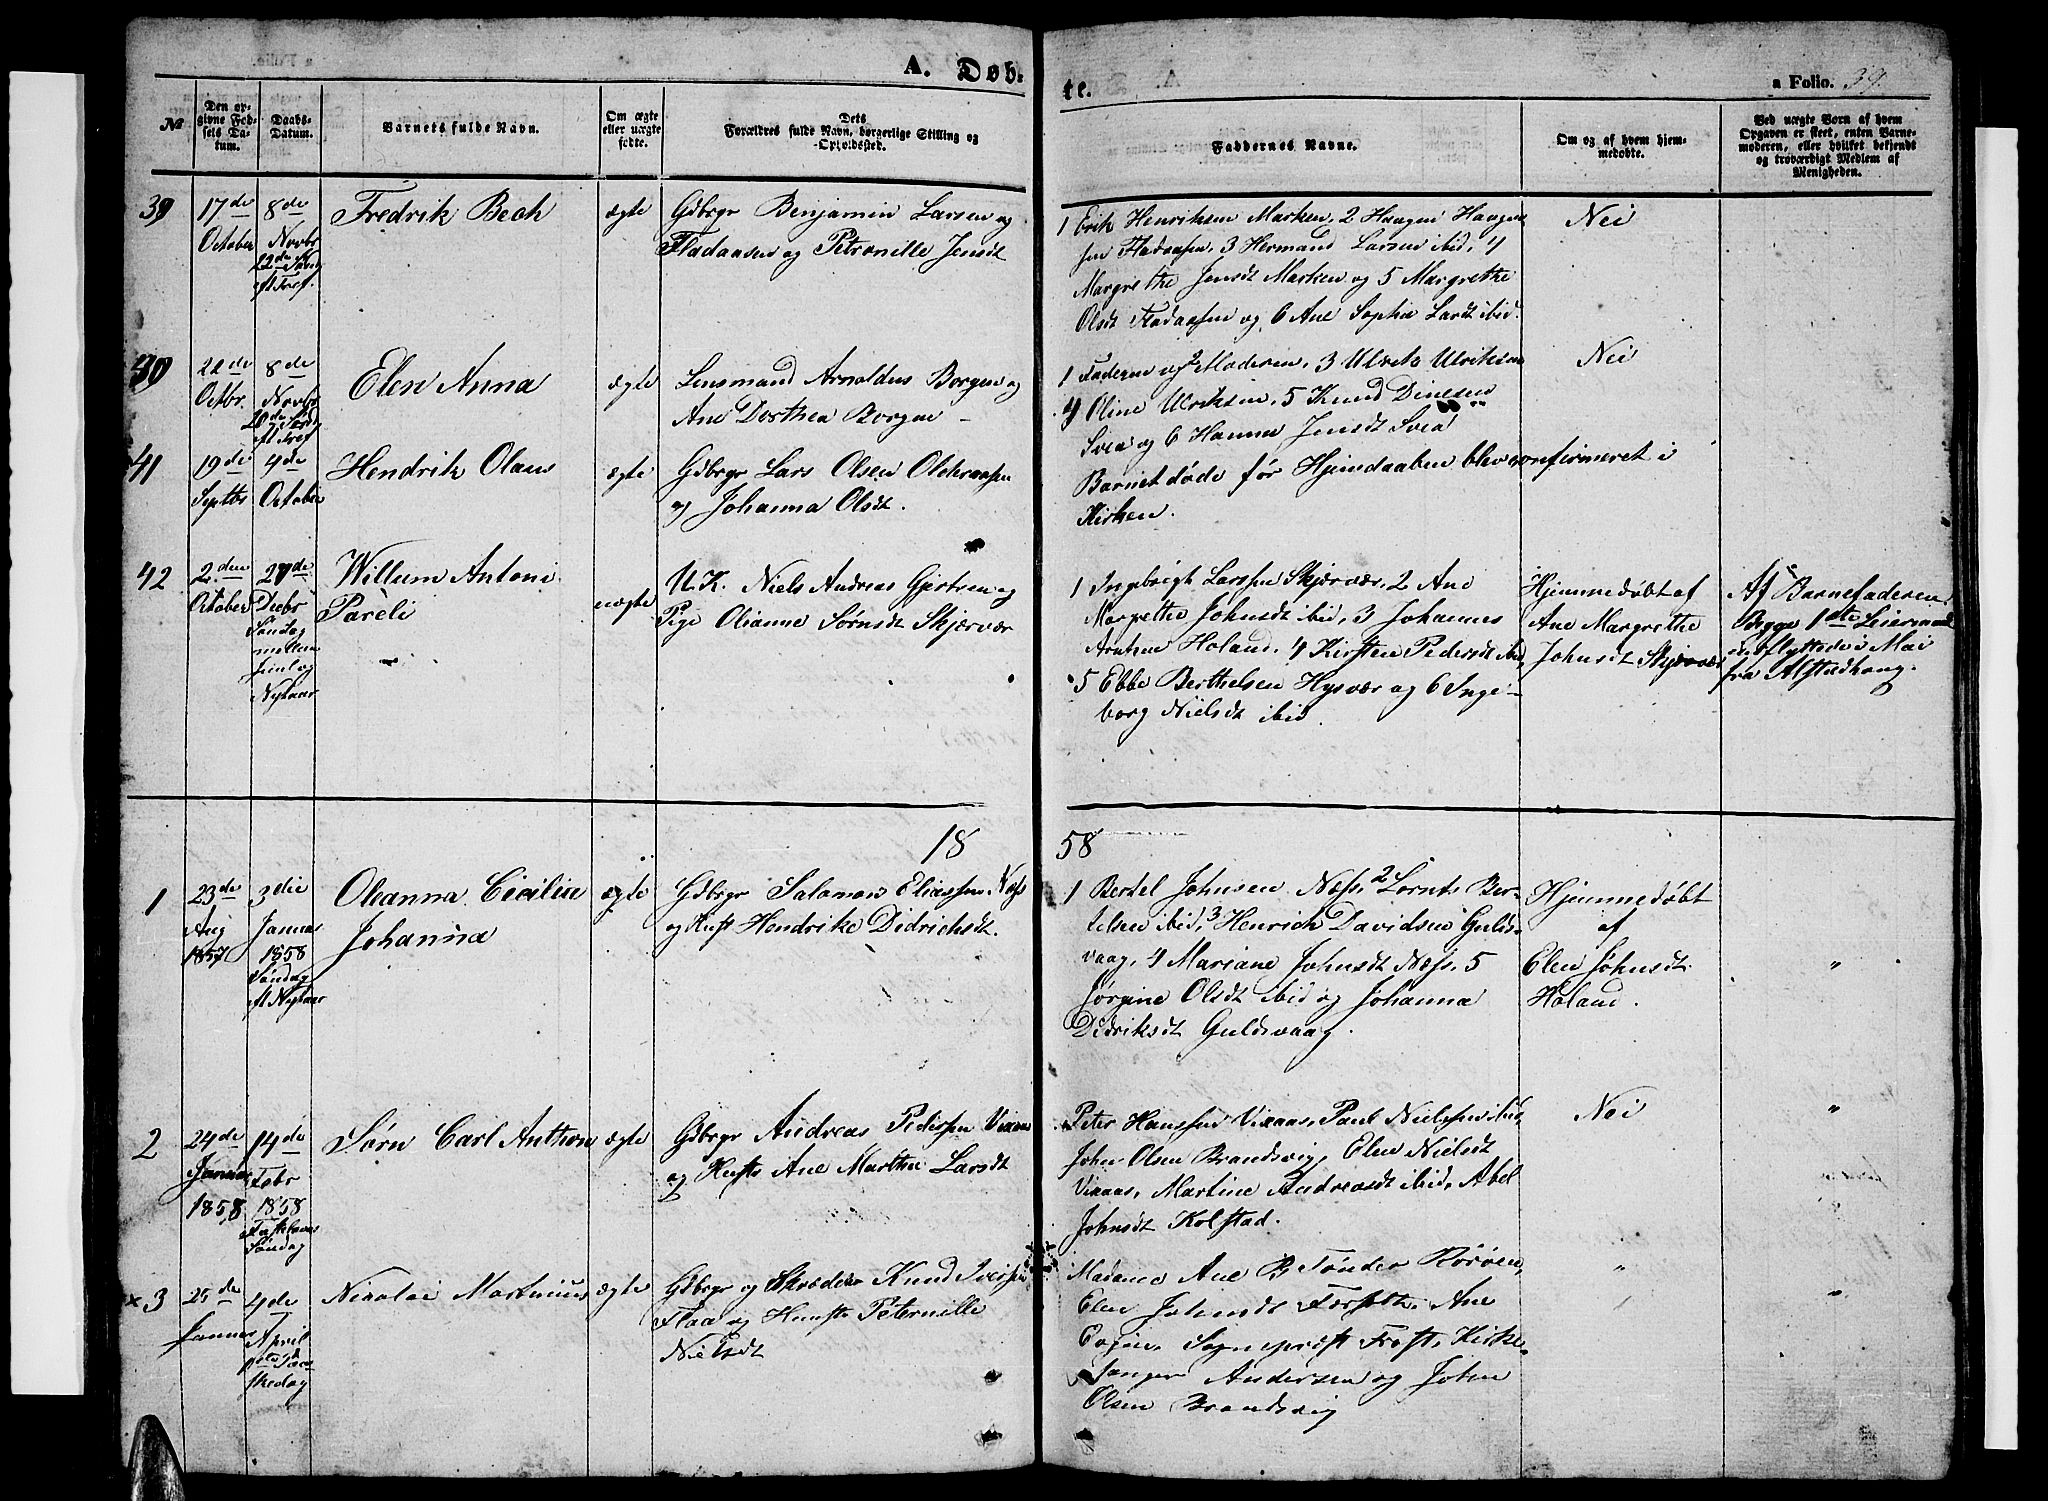 A. Døb-
te.
a Folio. 39.
№
Den op-
givne Fød-
sels Da-
tum.
Daabs-
Datum.
Barnets fulde Navn.
Om ægte
eller uægte
fødte.
Dets
Forældres fulde Navn, borgerlige Stilling og
Opholdssted.
Faddernes Navne.
Om og af hvem hjem-
medøbte.
Ved uægte Børn af hvem
Opgaven er skeet, enten Barne-
moderen, eller hvilket bekjendt
og troværdigt Medlem af
Menigheden.
39
17de
October
8de
Novbr
22de Sønd
ft Tref.
Fredrik Bech
ægte
Gdbrgr Benjamin Larsen og
Fladaasen og Petronille Jensdt
1 Erik Henriksen Marken, 2 Haagen Haagen
sen Fladaasen, 3 Hermand Larsen ibid, 4
Margrethe Jensdt Marken og 5 Margrethe
Olsdt Fladaasen og 6 Ane Sophie Larsdt ibid.
Nei
40
22de
Octbr.
8de
Novbr
ft Tref
Elen Anna
ægte
Lensmand Arnoldus Borgen og
Ane Dorthea Borgen
1 Faderen og 2 Moderen, 3 Ulrik Ulriksen
4 Oline Ulriksen, 5 Knud Dinesen
Svea og 6 Hanna Jensdt Svea
Nei
41
19de
Septbr
4de
October
Hendrik Olaus
ægte
Gdbrgr Lars Olsen
og Johanna Olsdt.
Barnet døde før Hjemdaaben blev confirmeret i
Kirken.
42
2den
October
27de
Decbr
Søndag
mellem
Juul og
Nytaar
Willum Antoni
Pareli
uægte
U.K. Niels Andreas Gjertsen og
Pige Olianne Sørnsdt Skjærvær
1 Ingebrigt Larssen Skjærvær, 2 Ane
Margrethe Johnsdt ibid, 3 Johannes
Arntsen Holand, 4 Kirsten Pedersdt ibid,
5 Ebbe Berthelsen Hysvær og 6 Inge-
borg Nielsdt ibid.
Hjemmedøbt af
Ane Margrethe
Johnsdt Skjærvær
Af Barnefaderen.
Begge 1ste Leiermaal
indflyttede i Mai
fra Alstadhoug.
18
58
1
23de
Aug
1857
3die
Januar
1858
Søndag
ft Nytaar
Oleanna Cecilia
Johanna
ægte
Gdbrgr Salomon Eliassen Næss
og Kust Hendrike Didrichsdt.
1 Bertel Johnsen Næss, 2 Lornts Ber-
telsen ibid, 3 Henrich Davidsen Guldsvaag, 4 Mariane Johnsdt Næss, 5
Jørgine Olsdt ibid og Johanna
Didriksdt Guldsvaag.
Hjemmedøbt
af
Elen Johnsdt
Holand.
"
2
24de
Januar
1858
14de
Febr
1858
Fastelavns
Søndag
Sørn Carl Anthon
ægte
Gdbrgr Andreas Pederssen Vixaas
og Kust Ane Martha Larsdt
Peter Hanssen Vixaas, Paul Nielssen ibid,
John Olsen Brandsvig, Elen Nielsdt
Vixaas, Martine Andreasdt ibid, Abel
Johnsdt Kolstad.
Nei
"
x 3
25de
Januar
4de
April
1ste
Paaskedag
Nikolai Martinius
ægte
Gdbrgr og Skrædder Knud Iverssen
Flaa og Hust Peternille
Nielsdt
Madame Ane B Tønder Rørøen,
Elen Johnsdt Forseth, Ane
Sogneprest Frost, Kirke-
sanger Andersen og John
Olsen Brandsvig
"
"